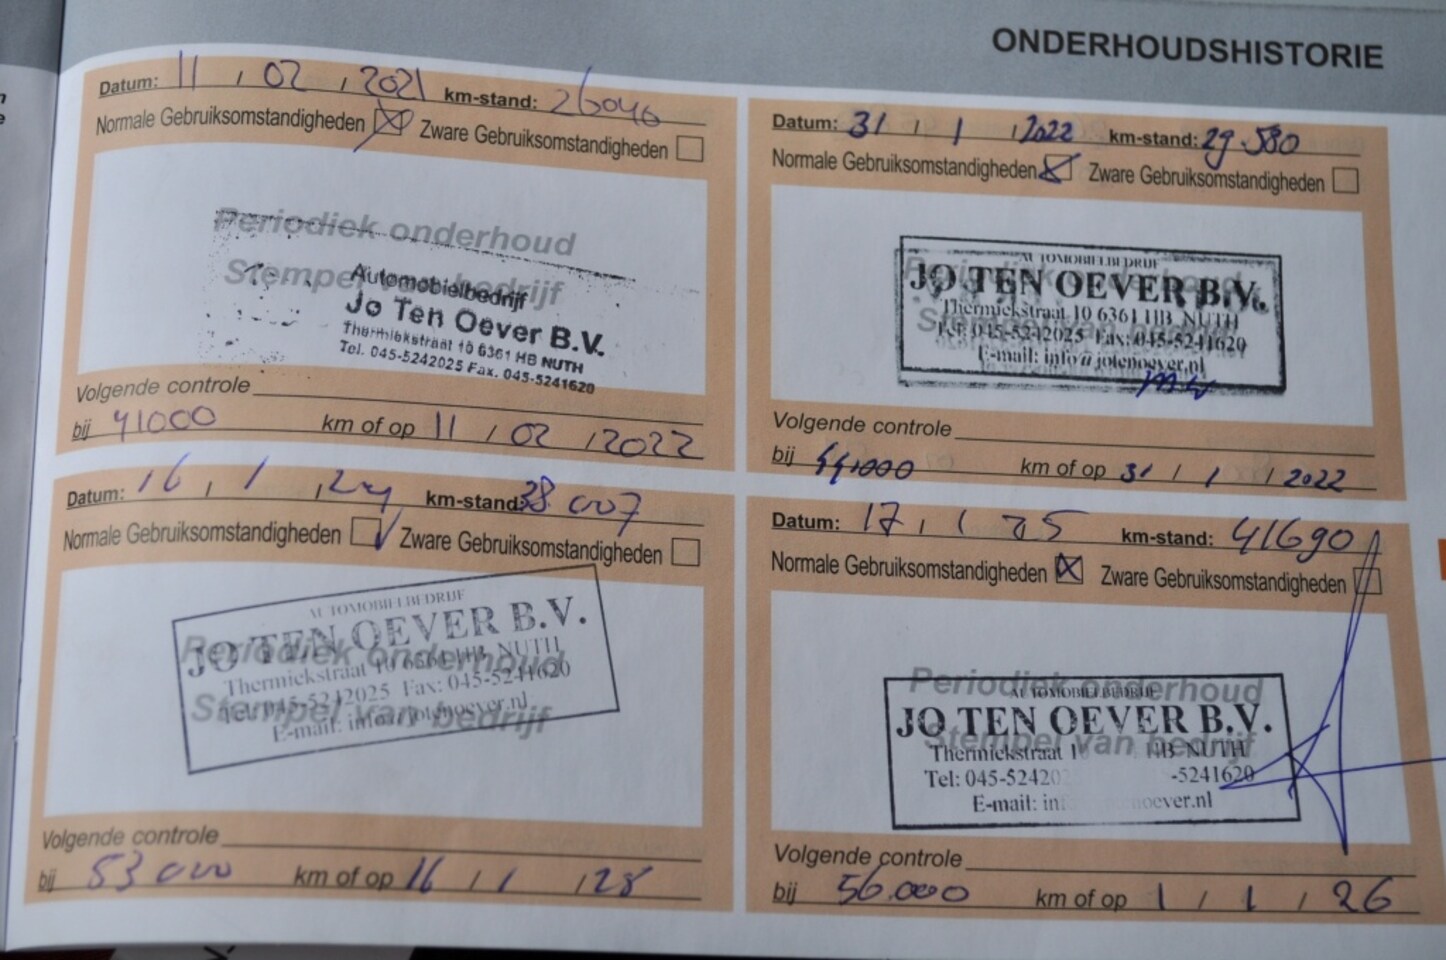 ONDERHOUDSHISTORIE
Datum: 11 / 02 / 2021 km-stand: 26046
Normale Gebruiksomstandigheden Zware Gebruiksomstandigheden
Periodiek onderhoud
Stempel van bedrijf
Automobielbedrijf
Jo Ten Oever B.V.
Thermiekstraat 10 6361 HB NUTH
Tel. 045-5242025 Fax. 045-5241620
Volgende controle
bij 41000 km of op 11 / 02 / 2022
Datum: 31 / 1 / 2022 km-stand: 29.580
Normale Gebruiksomstandigheden Zware Gebruiksomstandigheden
Periodiek onderhoud
Stempel van bedrijf
AUTOMOBIELBEDRIJF
JO TEN OEVER B.V.
Thermiekstraat 10 6361 HB NUTH
Tel: 045-5242025 Fax: 045-5241620
E-mail: info@jotenoever.nl
Volgende controle
bij 44.000 km of op 31 / 1 / 2022
Datum: 16 / 1 / 24 km-stand: 38.007
Normale Gebruiksomstandigheden Zware Gebruiksomstandigheden
Periodiek onderhoud
Stempel van bedrijf
AUTOMOBIELBEDRIJF
JO TEN OEVER B.V.
Thermiekstraat 10 6361 HB NUTH
Tel: 045-5242025 Fax: 045-5241620
E-mail: info@jotenoever.nl
Volgende controle
bij 53000 km of op 16 / 1 / 25
Datum: 17 / 1 25 km-stand: 41690
Normale Gebruiksomstandigheden Zware Gebruiksomstandigheden
Periodiek onderhoud
Stempel van bedrijf
AUTOMOBIELBEDRIJF
JO TEN OEVER B.V.
Thermiekstraat 1 HB NUTH
Tel: 045-52420 -5241620
E-mail: in enoever.nl
Volgende controle
bij 56.000 km of op 1 / 1 / 26